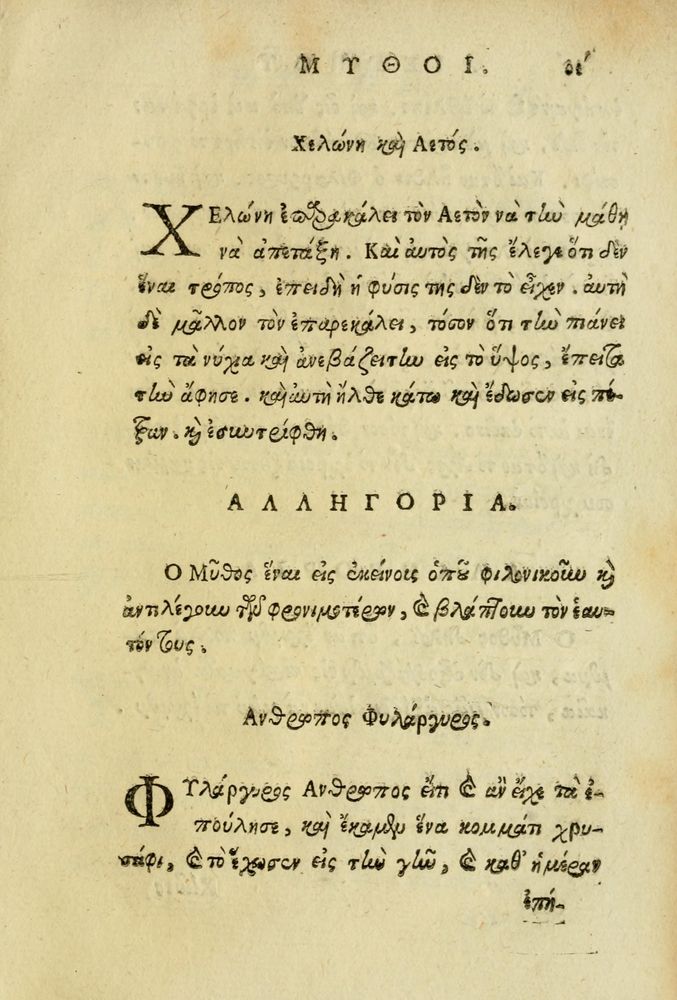 ΜΥΘΟΙ.
Χελώνη καὶ Αετός.
ΧΕλώνη ἐπαρακάλει τὸν Αετὸν νὰ τὴν μάθῃ
νὰ ἀπετάξῃ. Καὶ αὐτὸς τῆς ἔλεγε ὅτι δὲν
ἔναι τρόπος, ἐπειδὴ ἡ φύσις της δὲν τὸ εἶχεν. αὐτὴ
δὲ μᾶλλον τὸν ἐπαρεκάλει, τόσον ὅτι τὴν πιάνει
εἰς τὰ νύχια καὶ ἀνεβάζει την εἰς τὸ ὕψος, ἔπειτα
τὴν ἄφησε. καὶ αὐτὴ ἦλθε κάτω καὶ ἔδωσεν εἰς πέ-
τραν. καὶ ἐσκυτρίφθη.
ΑΛΛΗΓΟΡΙΑ.
Ο Μῦθος ἔναι εἰς ἐκείνοις ὁποῦ φιλονικοῦν καὶ
ἀντιλέγουν τῶν φρονιμοτέρων, καὶ βλάπτουν τὸν ἑαυ-
τόν τους.
Ανθρωπος Φυλάργυρος.
ΦΥλάργυρος Ανθρωπος εἴτι καὶ ἂν εἶχε τὰ ἐ-
πούλησε, καὶ ἔκαμεν ἕνα κομμάτι χρυ-
σάφι, καὶ τὸ ἔχωσεν εἰς τὴν γῆν, καὶ καθ' ἡμέραν
ἐπή-